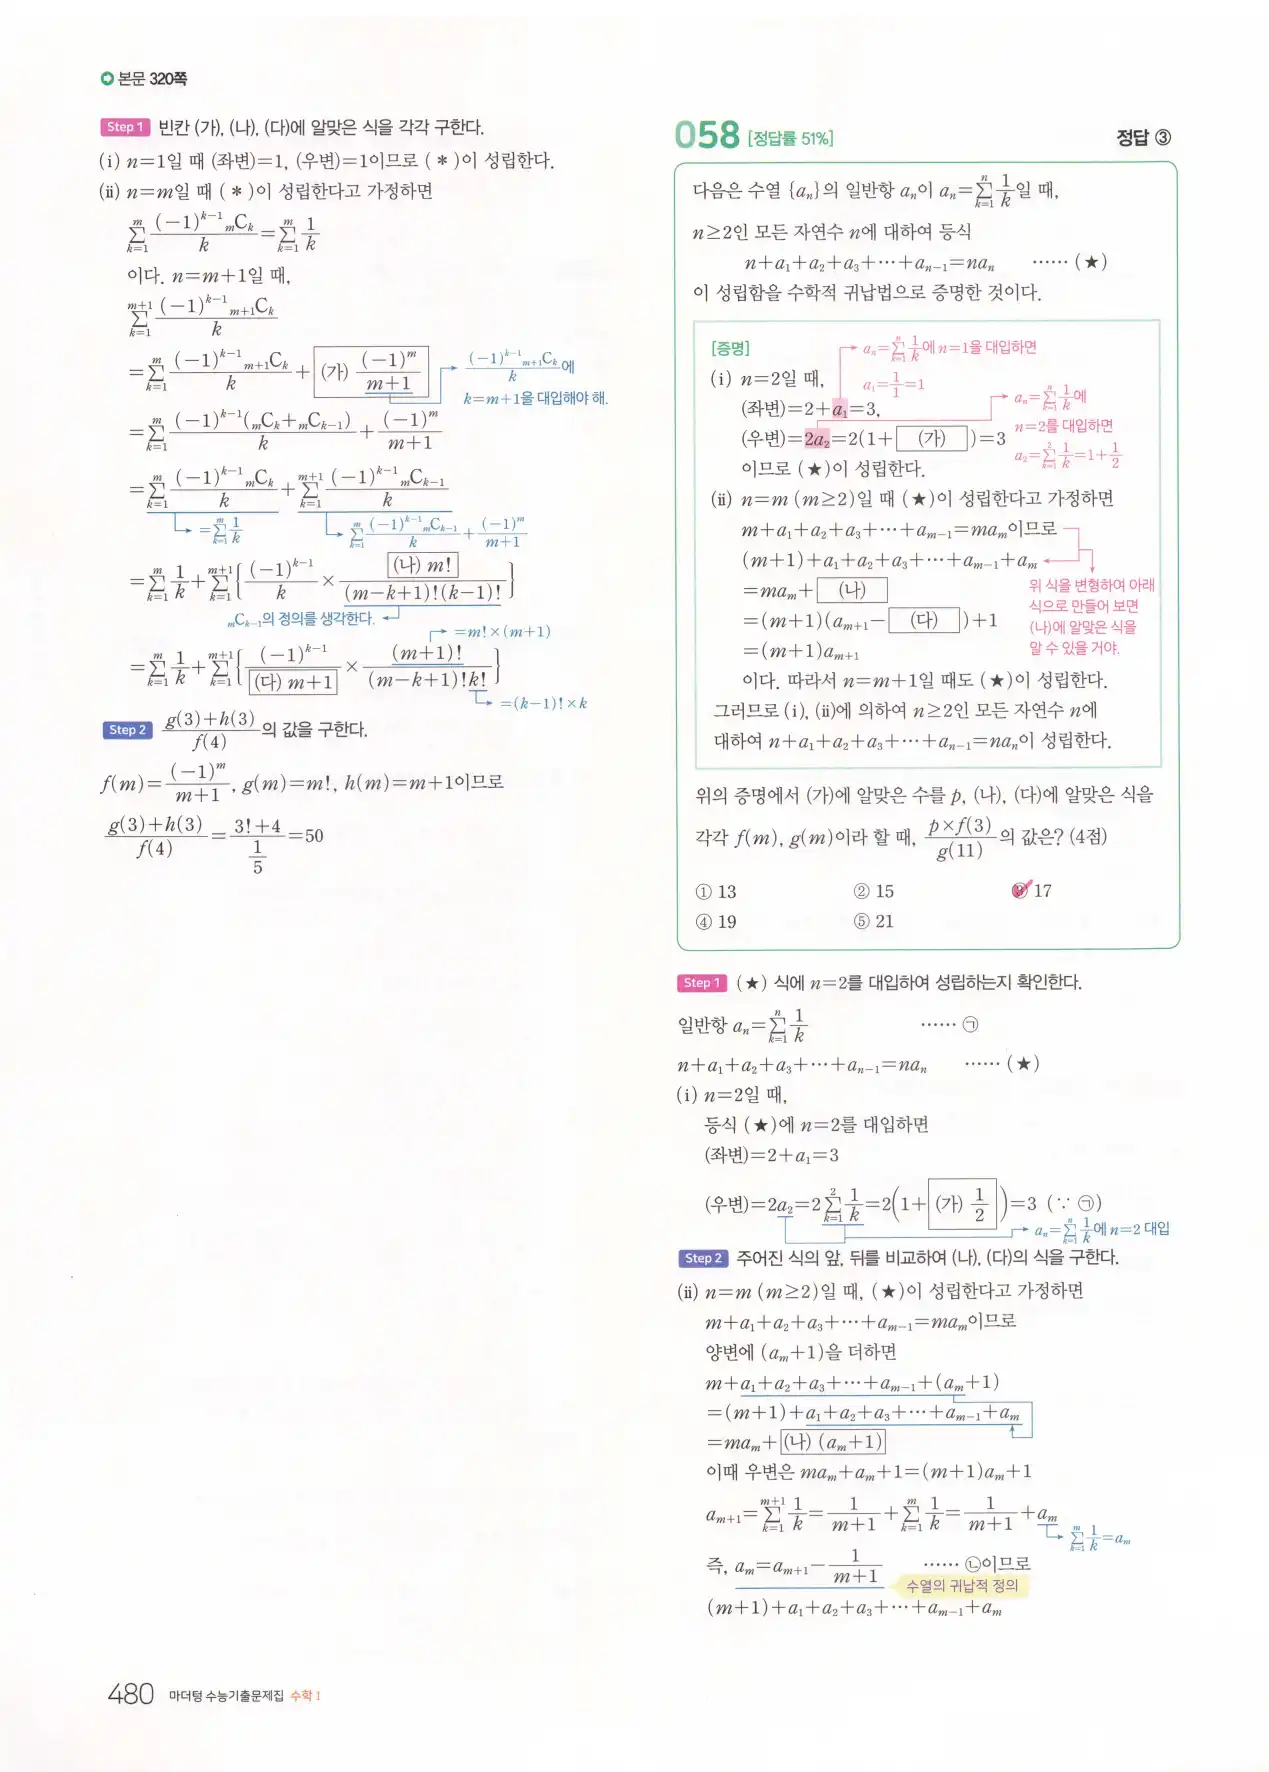 본문 320쪽
Step 1 빈칸 (가), (나), (다)에 알맞은 식을 각각 구한다.
(ⅰ) n=1일 때 (좌변)=1, (우변)=1이므로 ( * )이 성립한다.
(ⅱ) n=m일 때 ( * )이 성립한다고 가정하면
∑_{k=1}^{m} (-1)^{k-1} mCk / k = ∑_{k=1}^{m} 1/k
이다. n=m+1일 때,
∑_{k=1}^{m+1} (-1)^{k-1} m+1Ck / k
=∑_{k=1}^{m} (-1)^{k-1} m+1Ck / k + (가) (-1)^m / (m+1)
(-1)^{k-1} m+1Ck / k 에
k=m+1을 대입해야 해.
=∑_{k=1}^{m} (-1)^{k-1}(mCk+mCk-1) / k + (-1)^m / (m+1)
=∑_{k=1}^{m} (-1)^{k-1} mCk / k + ∑_{k=1}^{m+1} (-1)^{k-1} mCk-1 / k
=∑_{k=1}^{m} 1/k
∑_{k=1}^{m} (-1)^{k-1} mCk-1 / k + (-1)^m / (m+1)
=∑_{k=1}^{m} 1/k + ∑_{k=1}^{m+1} { (-1)^{k-1} / k × (나) m! / (m-k+1)!(k-1)! }
mCk-1의 정의를 생각한다.
=m!×(m+1)
=∑_{k=1}^{m} 1/k + ∑_{k=1}^{m+1} { (-1)^{k-1} / (다) m+1 × (m+1)! / (m-k+1)!k! }
=(k-1)!×k
Step 2 g(3)+h(3) / f(4) 의 값을 구한다.
f(m)= (-1)^m / (m+1), g(m)=m!, h(m)=m+1이므로
g(3)+h(3) / f(4) = 3!+4 / (1/5) =50
058 [정답률 51%] 정답 ③
다음은 수열 {an}의 일반항 an이 an=∑_{k=1}^{n} 1/k일 때,
n≥2인 모든 자연수 n에 대하여 등식
n+a1+a2+a3+⋯+an-1=nan ⋯⋯ (★)
이 성립함을 수학적 귀납법으로 증명한 것이다.
[증명]
an=∑_{k=1}^{n} 1/k에 n=1을 대입하면
a1=1/1=1
(ⅰ) n=2일 때,
(좌변)=2+a1=3,
an=∑_{k=1}^{n} 1/k에
n=2를 대입하면
a2=∑_{k=1}^{2} 1/k=1+1/2
(우변)=2a2=2(1+ (가) )=3
이므로 (★)이 성립한다.
(ⅱ) n=m (m≥2)일 때 (★)이 성립한다고 가정하면
m+a1+a2+a3+⋯+am-1=mam이므로
(m+1)+a1+a2+a3+⋯+am-1+am
=mam+ (나)
=(m+1)(am+1- (다) )+1
=(m+1)am+1
위 식을 변형하여 아래
식으로 만들어 보면
(나)에 알맞은 식을
알 수 있을 거야.
이다. 따라서 n=m+1일 때도 (★)이 성립한다.
그러므로 (ⅰ), (ⅱ)에 의하여 n≥2인 모든 자연수 n에
대하여 n+a1+a2+a3+⋯+an-1=nan이 성립한다.
위의 증명에서 (가)에 알맞은 수를 p, (나), (다)에 알맞은 식을
각각 f(m), g(m)이라 할 때, p×f(3) / g(11) 의 값은? (4점)
① 13 ② 15 ③ 17
④ 19 ⑤ 21
Step 1 (★) 식에 n=2를 대입하여 성립하는지 확인한다.
일반항 an=∑_{k=1}^{n} 1/k ⋯⋯ ㉠
n+a1+a2+a3+⋯+an-1=nan ⋯⋯ (★)
(ⅰ) n=2일 때,
등식 (★)에 n=2를 대입하면
(좌변)=2+a1=3
(우변)=2a2=2∑_{k=1}^{2} 1/k=2(1+ (가) 1/2 )=3 (∵ ㉠)
an=∑_{k=1}^{n} 1/k에 n=2 대입
Step 2 주어진 식의 앞, 뒤를 비교하여 (나), (다)의 식을 구한다.
(ⅱ) n=m (m≥2)일 때, (★)이 성립한다고 가정하면
m+a1+a2+a3+⋯+am-1=mam이므로
양변에 (am+1)을 더하면
m+a1+a2+a3+⋯+am-1+(am+1)
=(m+1)+a1+a2+a3+⋯+am-1+am
=mam+ (나) (am+1)
이때 우변은 mam+am+1=(m+1)am+1
am+1=∑_{k=1}^{m+1} 1/k = 1/(m+1) + ∑_{k=1}^{m} 1/k = 1/(m+1) + am
∑_{k=1}^{m} 1/k=am
즉, am=am+1- 1/(m+1) ⋯⋯ ㉡이므로
수열의 귀납적 정의
(m+1)+a1+a2+a3+⋯+am-1+am
480 마더텅 수능기출문제집 수학 Ⅰ